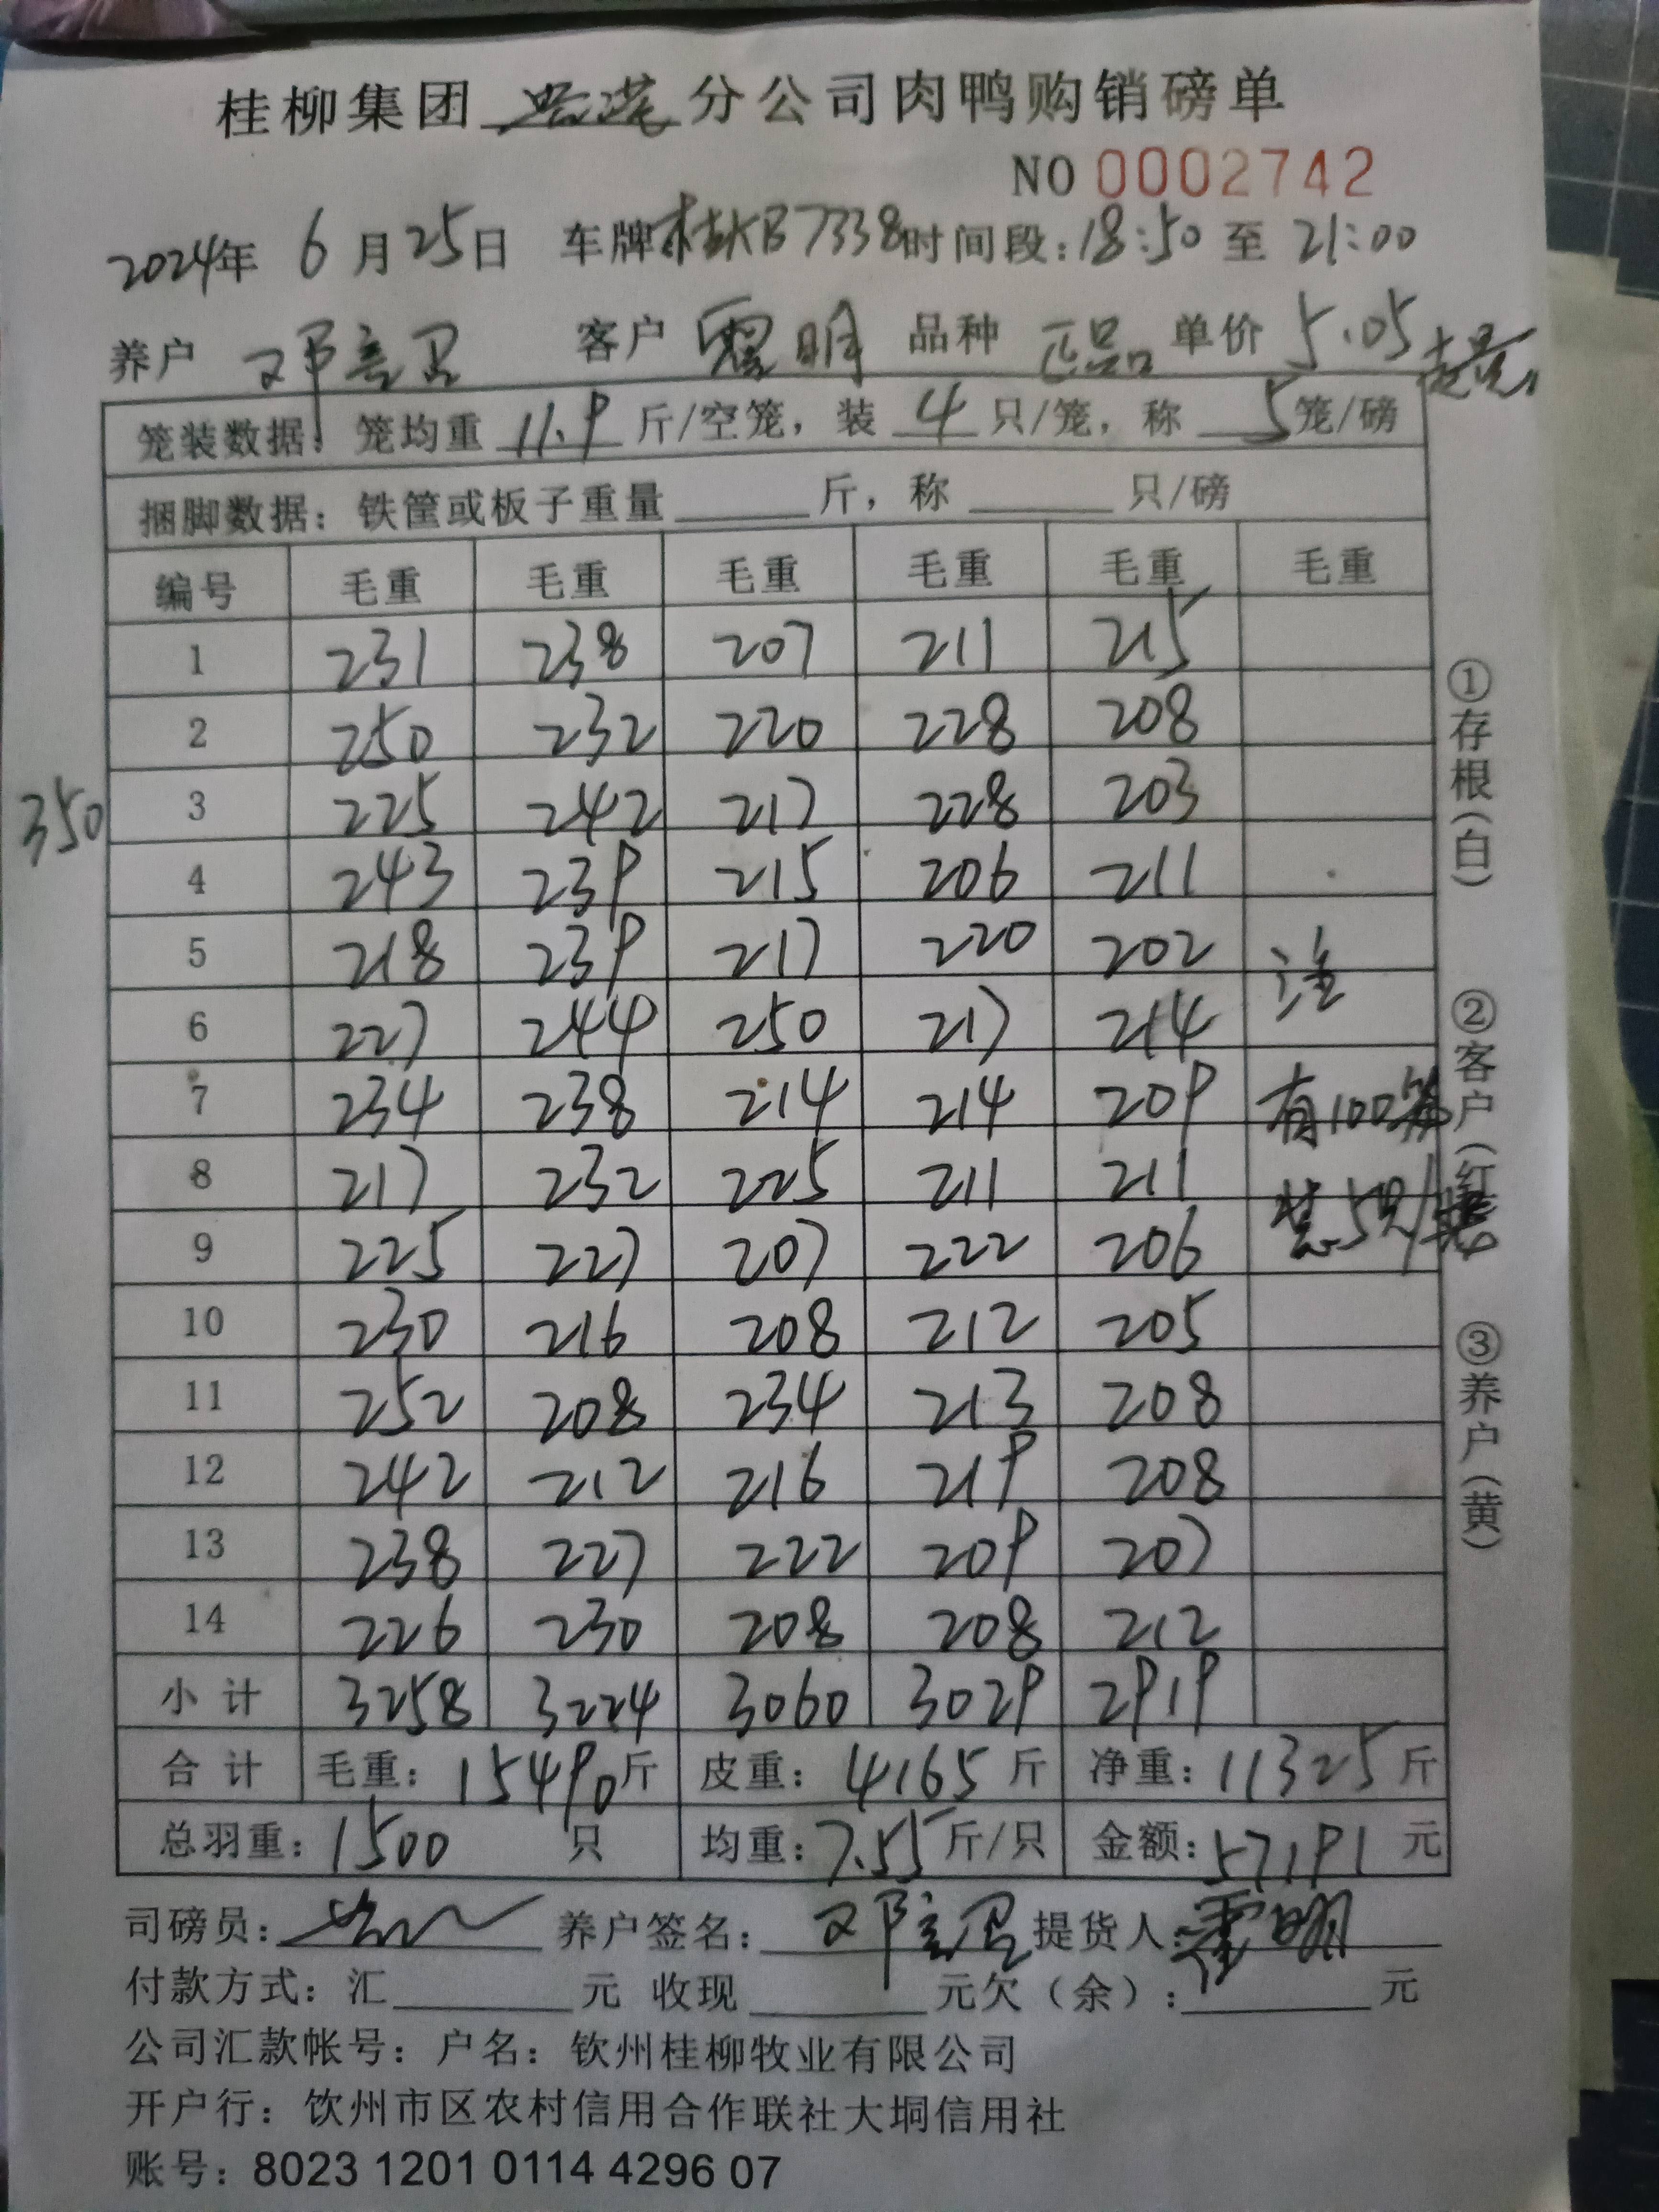 桂柳集团 分公司肉鸭购销磅单
NO 0002742
2024年 6月25日 车牌桂KB7338时间段:18:50至21:00
养户 邓 客户 霍明 品种 正品 单价 5.05
笼装数据: 笼均重 11.9 斤/空笼, 装 4 只/笼, 称 5笼/磅
捆脚数据: 铁筐或板子重量______斤, 称______只/磅
编号 毛重 毛重 毛重 毛重 毛重 毛重
1 231 238 207 211 215
2 250 232 220 228 208
350
3 225 242 217 228 203
4 243 239 215 206 211
5 218 239 217 220 202 注
6 227 244 250 217 214
7 234 238 214 214 209 有100笼
8 217 232 225 211 211 装5只/笼
9 225 227 207 222 206
10 230 216 208 212 205
11 252 208 234 213 208
12 242 212 216 219 208
13 238 227 222 209 207
14 226 230 208 208 212
小计 3258 3224 3060 3029 2919
合计 毛重: 15490斤 皮重: 4165斤 净重: 11325斤
总羽重: 1500 只 均重: 7.55斤/只 金额: 57191 元
司磅员: 养户签名: 邓 提货人: 霍明
付款方式: 汇______元 收现______元欠(余):______元
公司汇款帐号: 户名: 钦州桂柳牧业有限公司
开户行: 钦州市区农村信用合作联社大垌信用社
账号: 8023 1201 0114 4296 07
①存根(白) ②客户(红) ③养户(黄)